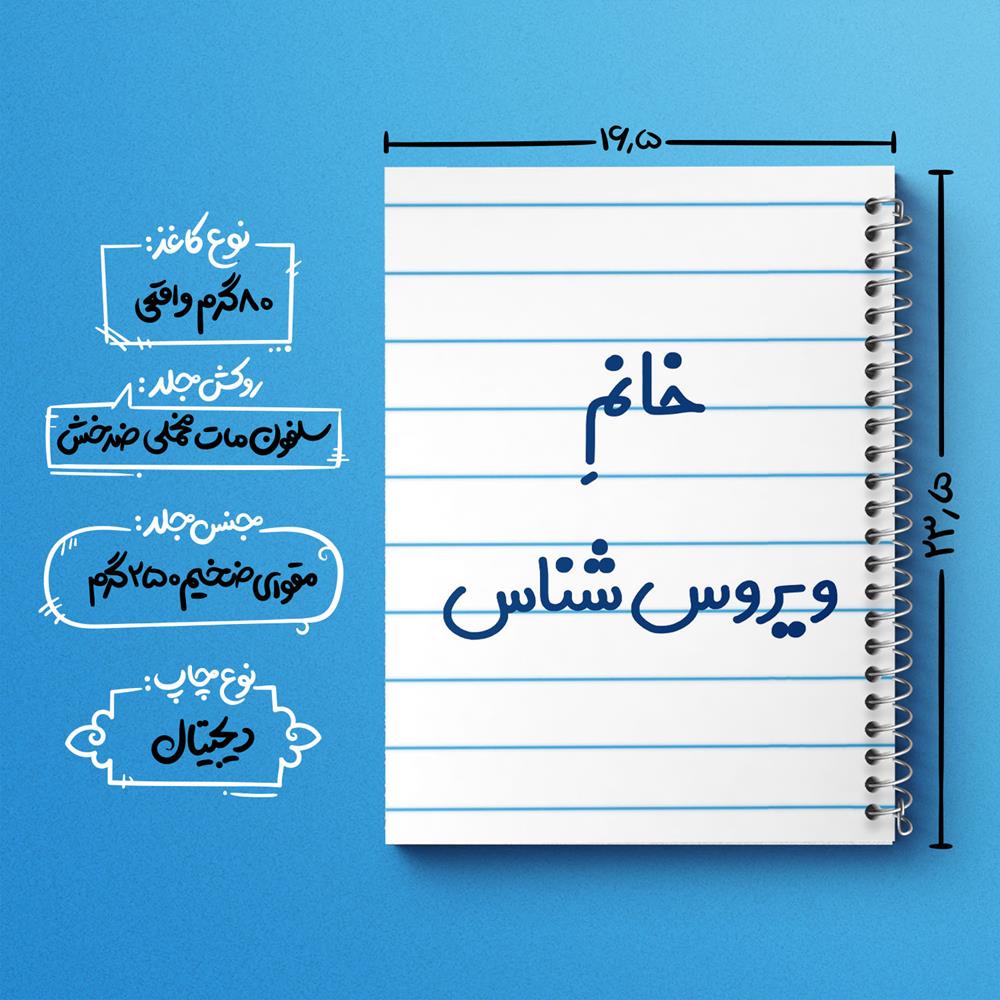 ۱۶٫۵
۲۳٫۵
خانمِ
ویروس شناس
نوع کاغذ:
۸۰گرم واقعی
روکش جلد:
سلفون مات مخملی ضدخش
جنس جلد:
مقوای ضخیم ۲۵۰ گرم
نوع چاپ:
دیجیتال